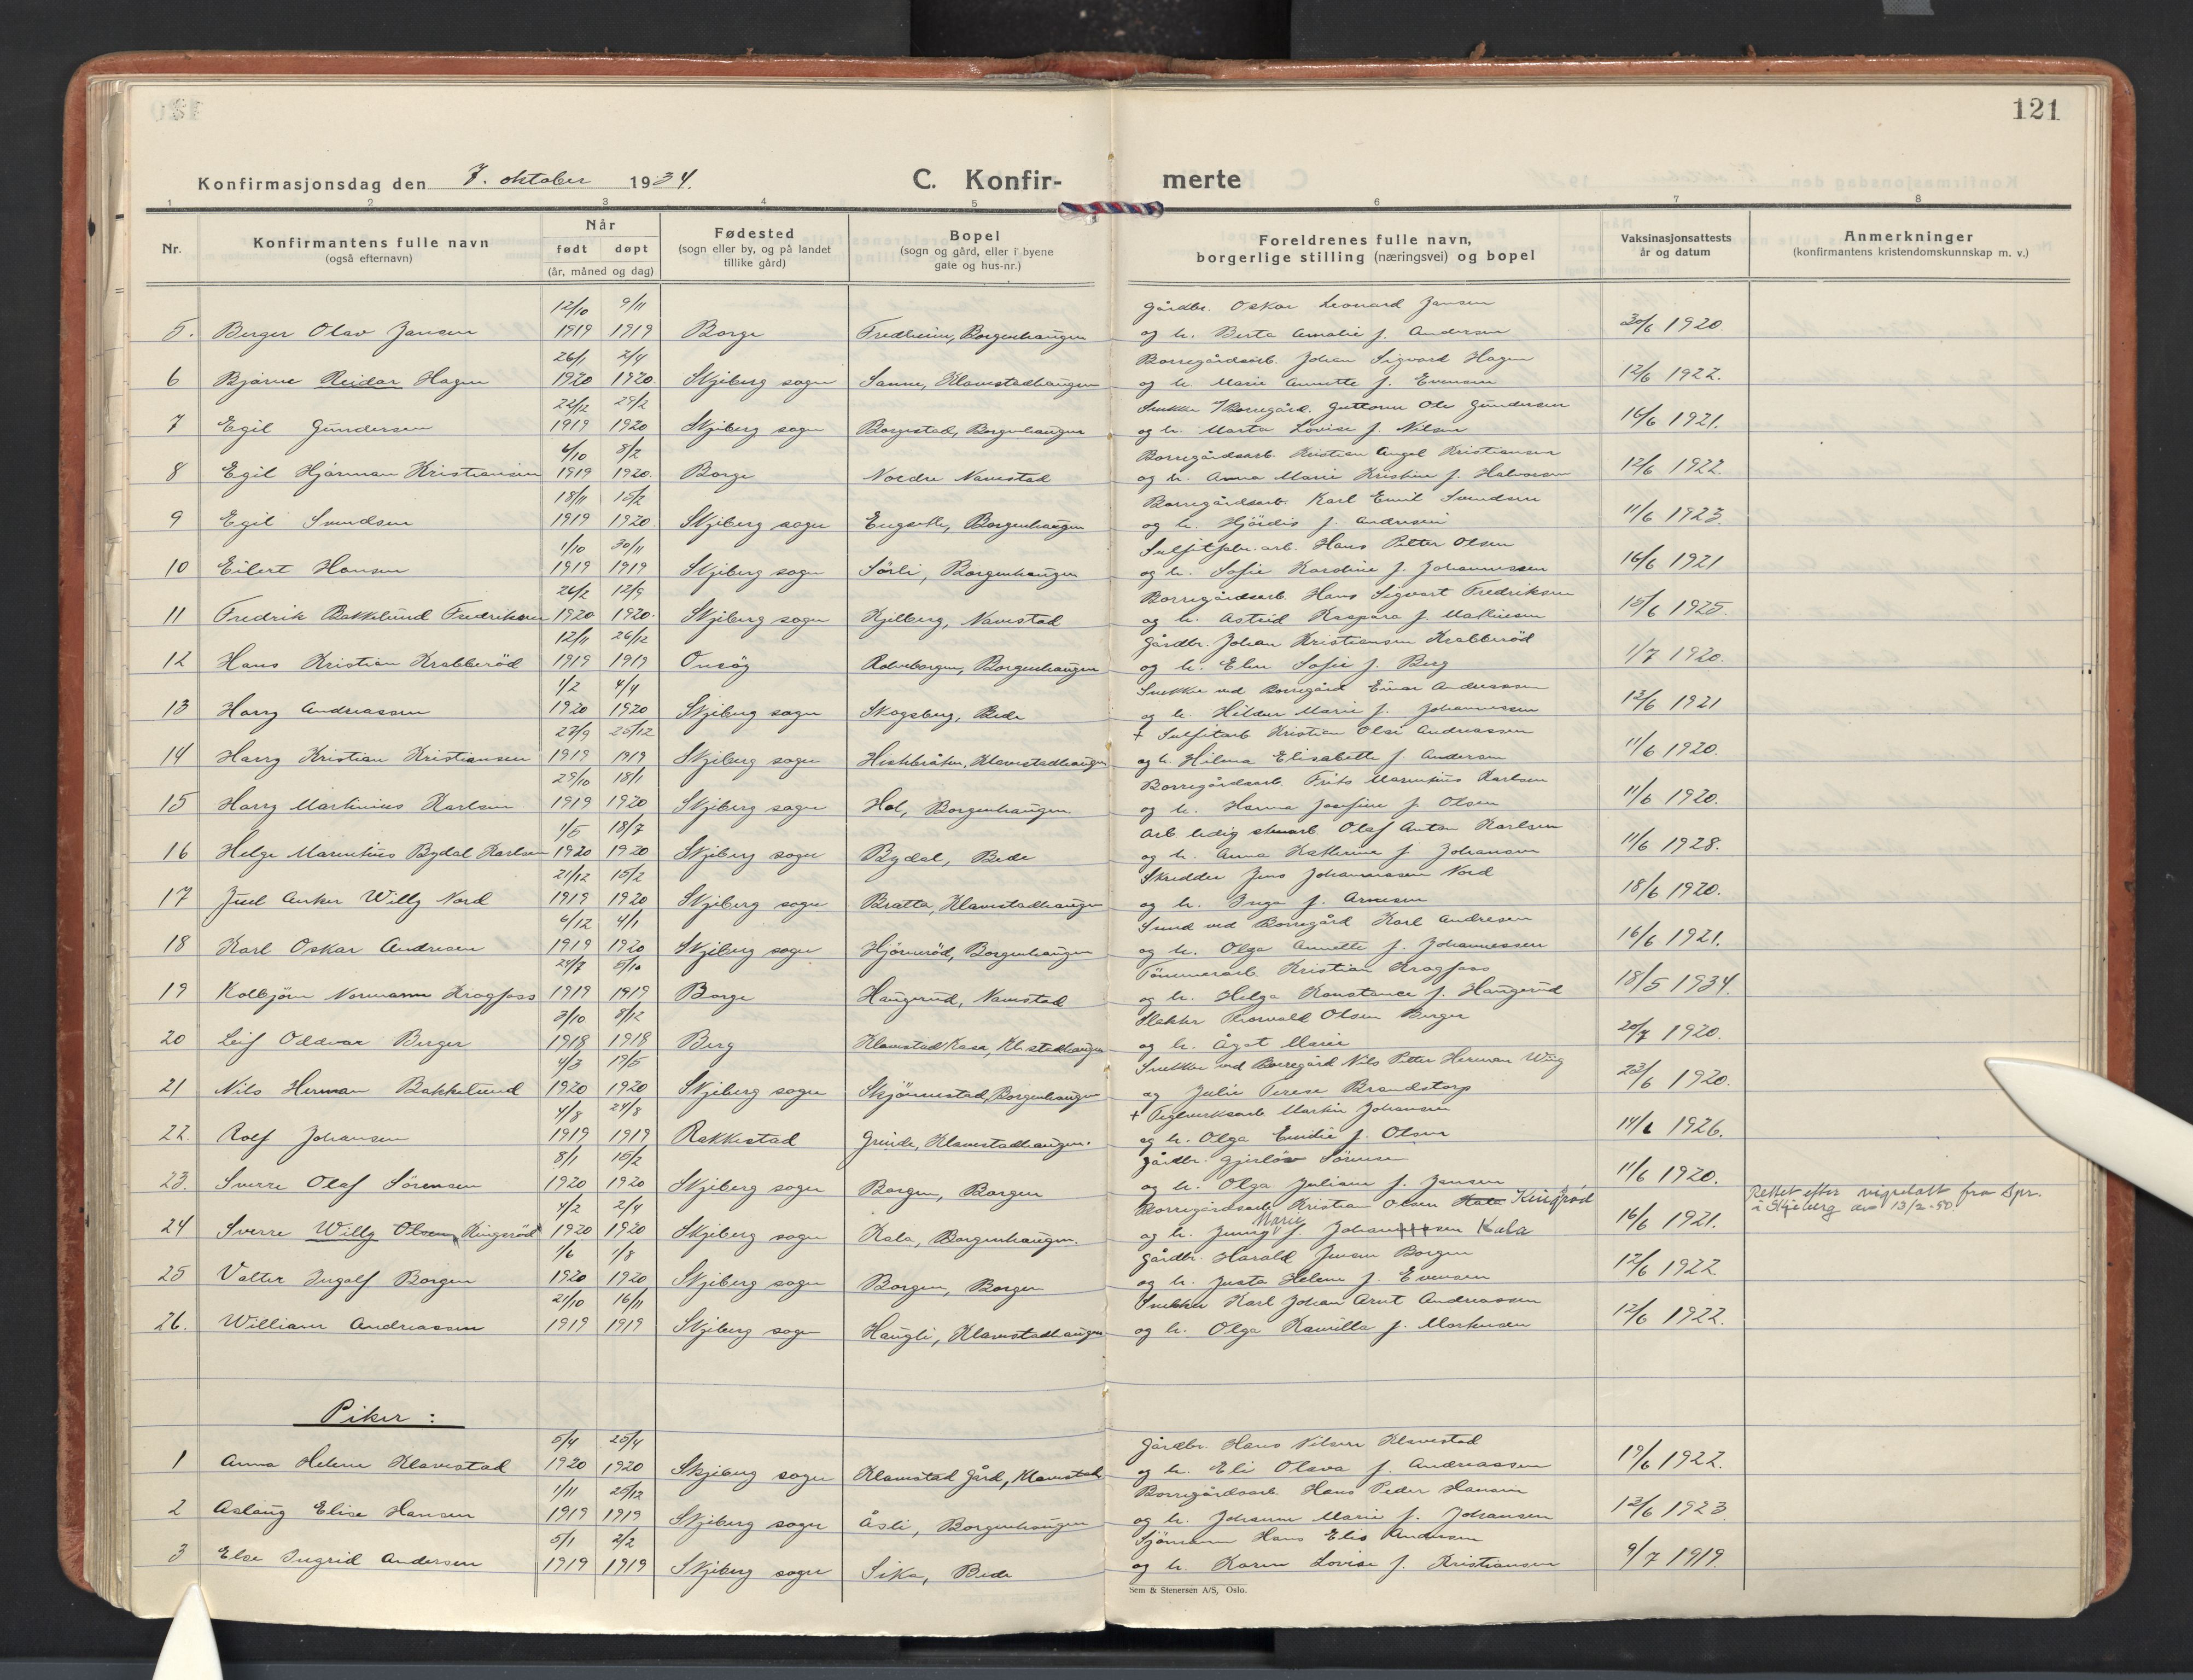 121
Konfirmasjonsdag den 7. oktober 1934.
C. Konfir- merte
1 2 3 4 5 6 7 8
Nr.
Konfirmantens fulle navn
(også efternavn)
Når
født døpt
(år, måned og dag)
Fødested
(sogn eller by, og på landet
tillike gård)
Bopel
(sogn og gård, eller i byene
gate og hus-nr.)
Foreldrenes fulle navn,
borgerlige stilling (næringsvei) og bopel
Vaksinasjonsattests
år og datum
Anmerkninger
(konfirmantens kristendomskunnskap m. v.)
12/10 9/11 Gårdbr. Oskar Leonard Jansen
5. Berger Olav Jansen 1919 1919 Borge Fredheim, Borgenhaugen og h. Berta Amalie f. Andersen 30/6 1920.
26/1 2/4 Borregårdsarb. Johan Sigvard Hagen
6 Bjarne Reidar Hagen 1920 1920. Skjeberg sogn Sanne, Klavestadhaugen og h. Marie Annette f. Evensen 12/6 1922.
22/12 29/2 Snekker v/Borregård. Guttorm Ole Gundersen
7 Egil Gundersen 1919 1920 Skjeberg sogn Borgestad, Borgenhaugen og h. Marta Lovise f. Nilsen 16/6 1921.
4/10 8/2 Borregårdsarb. Kristian Angel Kristiansen
8 Egil Hjarman Kristiansen 1919 1920. Borge Nordre Navestad og h. Anna Marie Kristine f. Halvorsen 12/6 1922.
18/11 15/2 Borregårdsarb. Karl Emil Svendsen
9 Egil Svendsen 1919 1920. Skjeberg sogn Engsette, Borgenhaugen og h. Hjördis f. Andresen 11/6 1923.
1/10 30/11 Sulfitfabr. arb. Hans Petter Olsen
10 Eilert Hansen 1919 1919 Skjeberg sogn Sörli, Borgenhaugen og h. Sofie Karoline f. Johannessen 16/6 1921
26/2 12/9 Borregårdsarb. Hans Sigvart Fredriksen
11 Fredrik Bakkelund Fredriksen 1920 1920. Skjeberg sogn Kjelberg, Navestad og h. Astrid Kaspara f. Mathisen 15/6 1925.
12/11 26/12 Gårdbr. Johan Kristiansen Krabberöd
12 Hans Kristian Krabberöd 1919 1919 Onsöy Borgenhaugen og h. Elen Sofie f. Berg 1/7 1920.
1/2 4/4 Snekker ved Borregård Einar Andreassen
13 Harry Andreassen 1920 1920 Skjeberg sogn Skogsberg, Bede og h. Hildur Marie f. Johannessen 13/6 1921
23/9 25/12 + Sulfitarb Kristian Olai Andreassen
14 Harry Kristian Kristiansen 1919 1919 Skjeberg sogn Klavestadhaugen og h. Hilma Elisabeth f. Andersen 11/6 1920.
29/10 18/1 Borregårdsarb. Frits Marentius Karlsen
15 Harry Martinius Karlsen 1919 1920 Skjeberg sogn Hol, Borgenhaugen og h. Hanna Josefine f. Olsen 11/6 1920.
1/5 18/7 Arb. ledig Olaf Anton Karlsen
16 Helge Marentius Bydal Karlsen 1920 1920 Skjeberg sogn Bydal, Bede og h. Anna Katherine f. Johansen 11/6 1928.
21/12 15/2 Skredder Jens Johannessen Nord
17 Juul Anker Willy Nord 1919 1920 Skjeberg sogn Bratta, Klavestadhaugen og h. Inga f. Arnesen 18/6 1920.
6/12 4/1 Smed ved Borregård Karl Andresen
18 Karl Oskar Andresen 1919 1920 Skjeberg sogn Hjörneröd, Borgenhaugen og h. Olga Annette f. Johannessen 16/6 1921.
24/7 5/10 Tömmerarb. Kristian Kragfoss
19 Kolbjörn Normann Kragfoss 1919 1919 Borge Haugerud, Navestad og h. Helga Konstance f. Haugerud 18/5 1934.
3/10 8/12 Slakter Thorvald Olsen Berger
20 Leif Oddvar Berger 1918 1918 Berg og h. Ågot Marie 20/7 1920.
4/3 19/5 Snekker ved Borregård Nils Petter Herman Wiig
21 Nils Herman Bakkelund 1920 1920 Skjeberg sogn Skjönnestad, Borgenhaugen og Julie Terese Brandstorp 23/6 1920.
4/8 24/8 + Teglverksarb. Martin Johansen
22. Rolf Johansen 1919 1919 Rakkestad Grinde, Klavestadhaugen. og h. Olga Emilie f. Olsen 14/6 1926.
8/1 15/2 Gårdbr. Gjerlöv Sörensen
23. Sverre Olaf Sörensen 1920 1920 Skjeberg sogn Borgen, Borgen og h. Olga Juliane f. Jansen 11/6 1920.
4/2 2/4 Borregårdsarb. Kristian Olsen Kala Kingsröd Rettet efter vigselatt fra Spr.
24 Sverre Willy Olsen Kingsröd 1920 1920 Skjeberg sogn Kala, Borgenhaugen. og h. Jenny Marie f. Johannessen Kala 16/6 1921. i Skjeberg av 13/2-50
1/6 1/8 Gårdbr. Harald Jensen Borgen
25 Valter Ingolf Borgen 1920 1920 Skjeberg sogn Borgen, Borgen og h. Justa Helene f. Evensen 12/6 1922
21/10 16/11 Snekker Karl Johan Arnt Andreassen
26. William Andreassen 1919 1919 Skjeberg sogn Haugli, Klavestadhaugen og h. Olga Kamilla f. Martinsen 12/6 1922.
Piker :
5/4 25/4 Gårdbr. Hans Nilsen Klavestad
1 Anna Helene Klavestad 1920 1920 Skjeberg sogn Klavestad gård, Klavestad og h. Eli Olava f. Andreassen 19/6 1922.
1/11 25/12 Borregårdsarb. Hans Peder Hansen
2 Aslaug Elise Hansen 1919 1919 Skjeberg sogn Åsli, Borgenhaugen og h. Johanne Marie f. Johansen 13/6 1923.
5/1 2/2 Sjömann Hans Elis Andersen
3 Else Ingrid Andersen 1919 1919 Skjeberg sogn Sika, Bede og h. Karen Lovise f. Kristiansen 9/7 1919.
Sem & Stenersen A/S, Oslo.